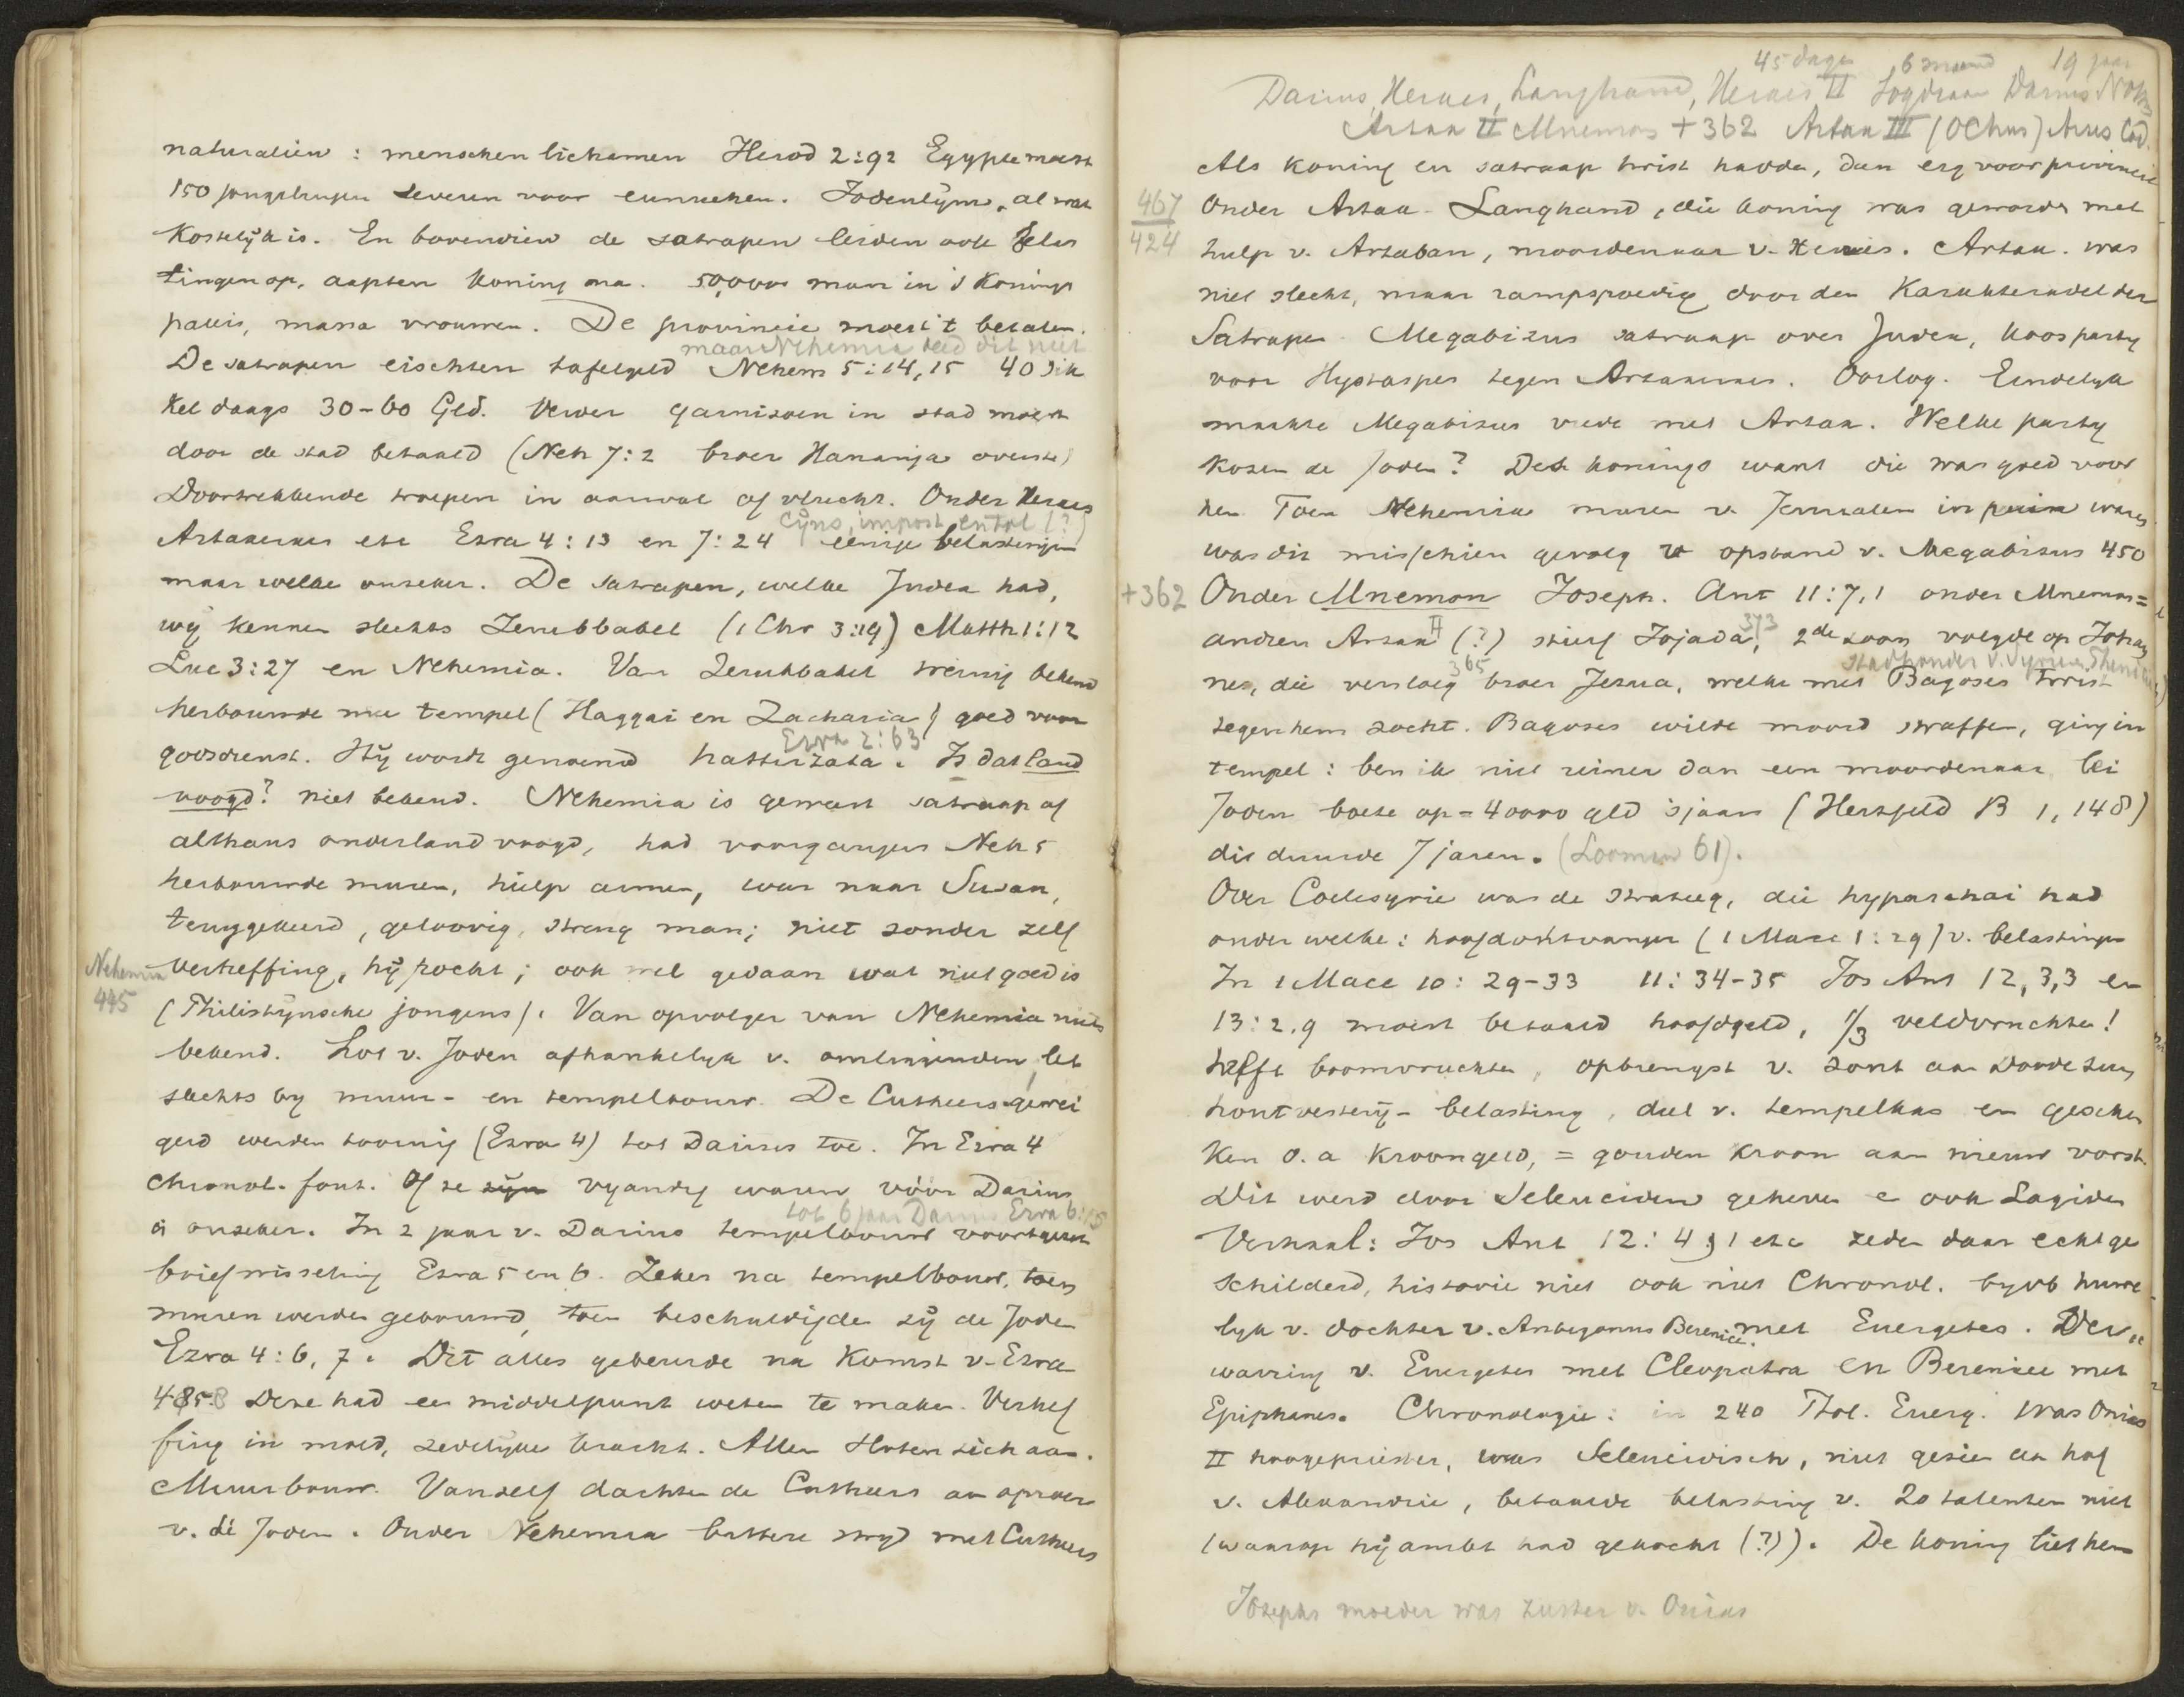 naturaliën : menschen lichamen Herod 2:92 Egypte moest
150 jongelingen leveren voor eunuchen. Jodenlijms, al wat
Kostelijk is. En bovendien de satrapen leiden ook belas
tingen op, aapten koning na. 50,000 man in 's Konings
paleis, massa vrouwen. De provincie moest 't betalen.
maar Nehemia deed dit niet
De satrapen eischten tafelgeld Nehem 5:14,15 40 sik
kel daags 30-60 Gld. Verder garnizoen in stad moest
door de stad betaald (Neh 7:2 broer Hananja overste)
Doortrekkende troepen in aanval of vlucht. Onder Xerxes
Cijns, impost en tol (?)
Artaxerxes etc Ezra 4:13 en 7:24 eenige belastingen
maar welke onzeker. De satrapen, welke Judea had,
wij kennen slechts Zerubbabel (1 Chr 3:19) Matth 1:12
Luc 3:27 en Nehemia. Van Zerubbabel weinig bekend
herbouwde nu tempel (Haggai en Zacharia) goed voor
Ezra 2:63
godsdienst. Hij wordt genoemd hattirzata. Is dat land
voogd? niet bekend. Nehemia is geweest satraap of
althans onderlandvoogd, had voorgangers Neh 5
herbouwde muren, hielp armen, was naar Susan,
teruggekeerd, geloovig, streng man; niet zonder zelf
Nehemia
445
verheffing, hij pocht; ook wel gedaan wat niet goed is
(Philistijnsche jongens). Van opvolger van Nehemia niets
bekend. Lot v. Joden afhankelyk v. omliggenden, let
slechts by muur- en tempelbouw. De Cutheers gewei
gerd werden toornig (Ezra 4) tot Darius toe. In Ezra 4
chronol. fout. Of ze zijn vyandig waren vóór Darius
tot 6 jaar Darius Ezra 6:15
is onzeker. In 2 jaar v. Darius tempelbouw voortgezet
briefwisseling Ezra 5 en 6. Zeker na tempelbouw, toen
muren werden gebouwd, toen beschuldigde zij de Joden
Ezra 4:6, 7. Dit alles gebeurde na Komst v. Ezra
458 Deze had een middelpunt weten te maken. Verhef
fing in moed, zedelijke kracht. Allen sloten zich aan.
Muurbouw. Vanzelf dachten de Cutheers aan oproer
v. de Joden. Onder Nehemia bittere stryd met Cutheers
45 dagen 6 maand 19 jaar
Darius, Xerxes, Langhand, Xerxes II Sogdiaan Darius Nothus
Artax II Mnemon +362 Artax III (Ochus) Arses Cod.
Als koning en satraap twist hadden, dan erg voor provincie
467
424
Onder Artax. Langhand, die koning was geworden met
hulp v. Artaban, moordenaar v. Xerxes. Artax. was
niet slecht, maar rampspoedig door den Karakteradel der
Satrapen. Megabizus satraap over Judea, koos party
voor Hystaspes tegen Artaxerxes. Oorlog. Eindelyk
maakte Megabizus vrede met Artax. Welke party
kozen de Joden? Des konings want die was goed voor
hen. Toen Nehemia muren v. Jeruzalem in puin waren
was dit misschien gevolg v opstand v. Megabizus 450
+362 Onder Mnemon Joseph. Ant 11:7,1 onder Mnemon =
andren Artax II (?) stierf Jojada 373, 2de zoon volgde op Johan
stadhouder v. Syrien
nes, die versloeg 365 broer Jezua, welke met Bagoses twist
tegen hem zocht. Bagoses wilde moord straffen, ging in
tempel: ben ik niet reiner dan een moordenaar lei
Joden boete op = 40000 gld 's jaars (Herzfeld B 1, 148)
dit duurde 7 jaren. (Looman 61).
Over Coelesyrie was de strateeg, die hyparchai had
onder welke: hoofdontvanger (1 Macc 1:29) v. belastingen
In 1 Macc 10: 29-33 11: 34-35 Jos Ant 12,3,3 en
13:2.9 moest betaald hoofdgeld, 1/3 veldvruchten!
helft boomvruchten, opbrengst v. zout aan Doode zee,
houtvestery- belasting, deel v. tempelkas en geschen
ken o.a Kroongeld, = gouden kroon aan nieuw vorst.
Dit werd door Seleuciden geheven en ook Lagiden
Verhaal: Jos Ant 12: 4, 1 etc zeden daar echt ge
schilderd, historie niet ook niet Chronol. byvb huwe
lyk v. dochter v. Antigonus Berenice met Euergetes. Ver
warring v. Euergetes met Cleopatra en Berenice met
Epiphanes. Chronologie: in 240 Ptol. Euerg. was Onias
II hoogepriester, was Seleucidisch, niet gezien aan hof
v. Alexandrie, betaalde belasting v. 20 talenten niet
(waarop hij ambt had gekocht (?)). De koning liet hem
Josephs moeder was zuster v. Onias